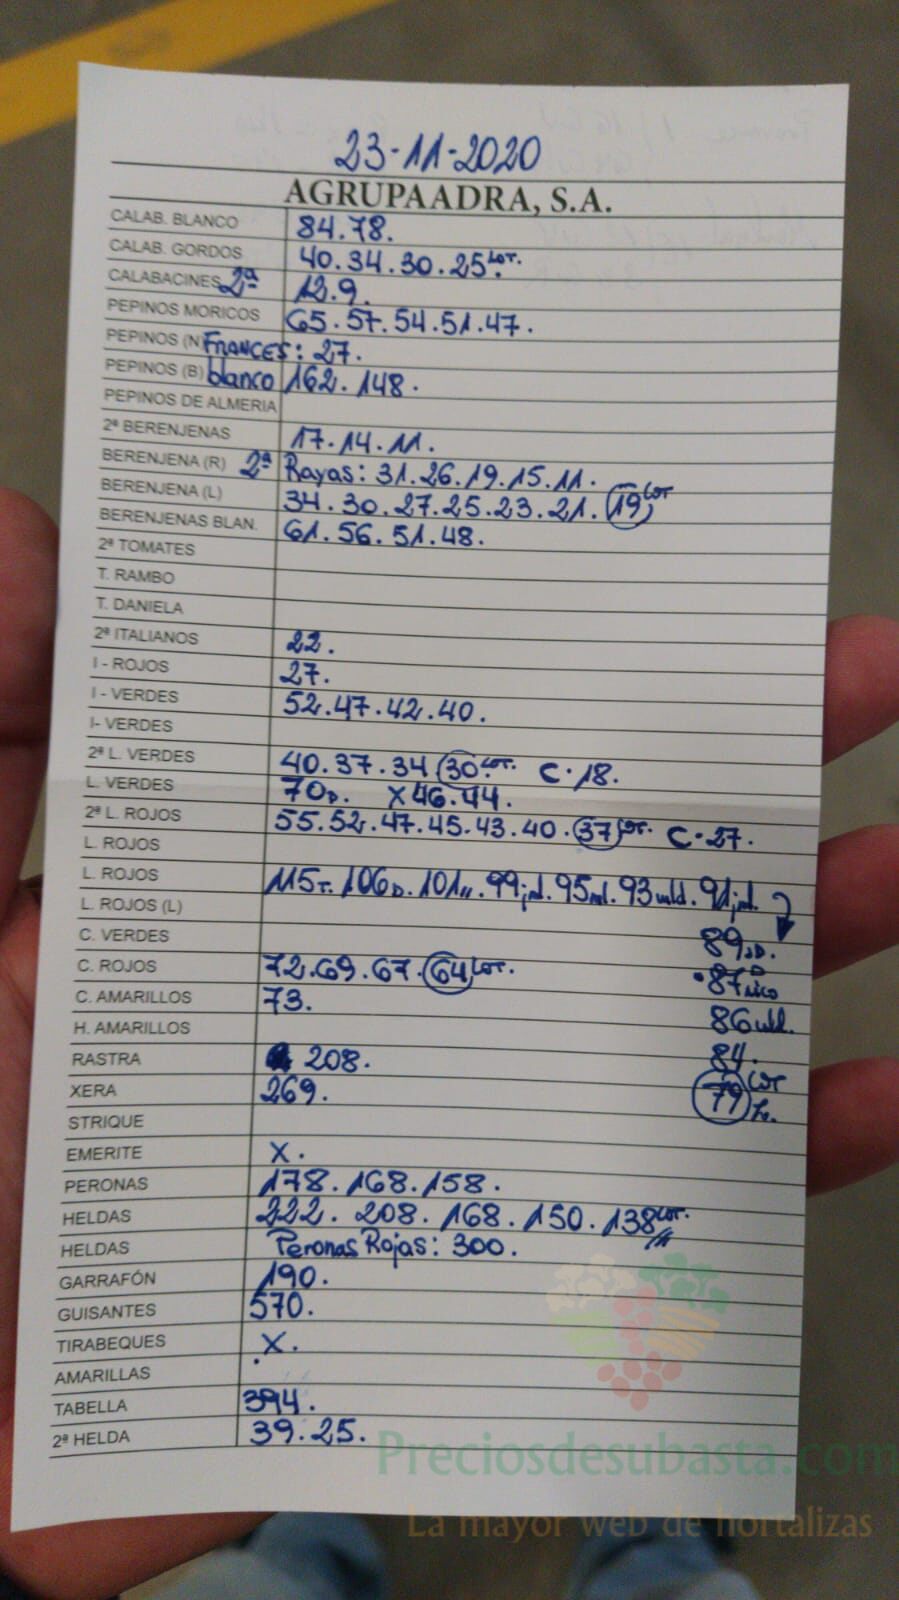 23-11-2020
AGRUPAADRA, S.A.
CALAB. BLANCO 84.78.
CALAB. GORDOS 40.34.30.25 LOT.
CALABACINES 2ª 12.9.
PEPINOS MORICOS 65.57.54.51.47.
PEPINOS (N) FRANCES: 27.
PEPINOS (B) blanco 162.148.
PEPINOS DE ALMERIA
2ª BERENJENAS 17.14.11.
BERENJENA (R) 2ª Rayas: 31.26.19.15.11.
BERENJENA (L) 34.30.27.25.23.21.19 LOT
BERENJENAS BLAN. 61.56.51.48.
2ª TOMATES
T. RAMBO
T. DANIELA
2ª ITALIANOS 22.
I - ROJOS 27.
I - VERDES 52.47.42.40.
I- VERDES
2ª L. VERDES 40.37.34 30 LOT. C.18.
L. VERDES 70D. X46.44.
2ª L. ROJOS 55.52.47.45.43.40.37 LOT. C.27.
L. ROJOS
L. ROJOS 115T.106D.101".99.95.93.91
L. ROJOS (L)
C. VERDES 89
C. ROJOS 72.69.67.64 LOT. 87
C. AMARILLOS 73. 86
H. AMARILLOS 84.
RASTRA 208. 79 LOT
XERA 269.
STRIQUE
EMERITE X.
PERONAS 178.168.158.
HELDAS 222. 208.168.150.138 LOT.
HELDAS Peronas Rojas: 300.
GARRAFÓN 190.
GUISANTES 570.
TIRABEQUES X.
AMARILLAS
TABELLA 394.
2ª HELDA 39.25.
Preciosdesubasta.com
La mayor web de hortalizas